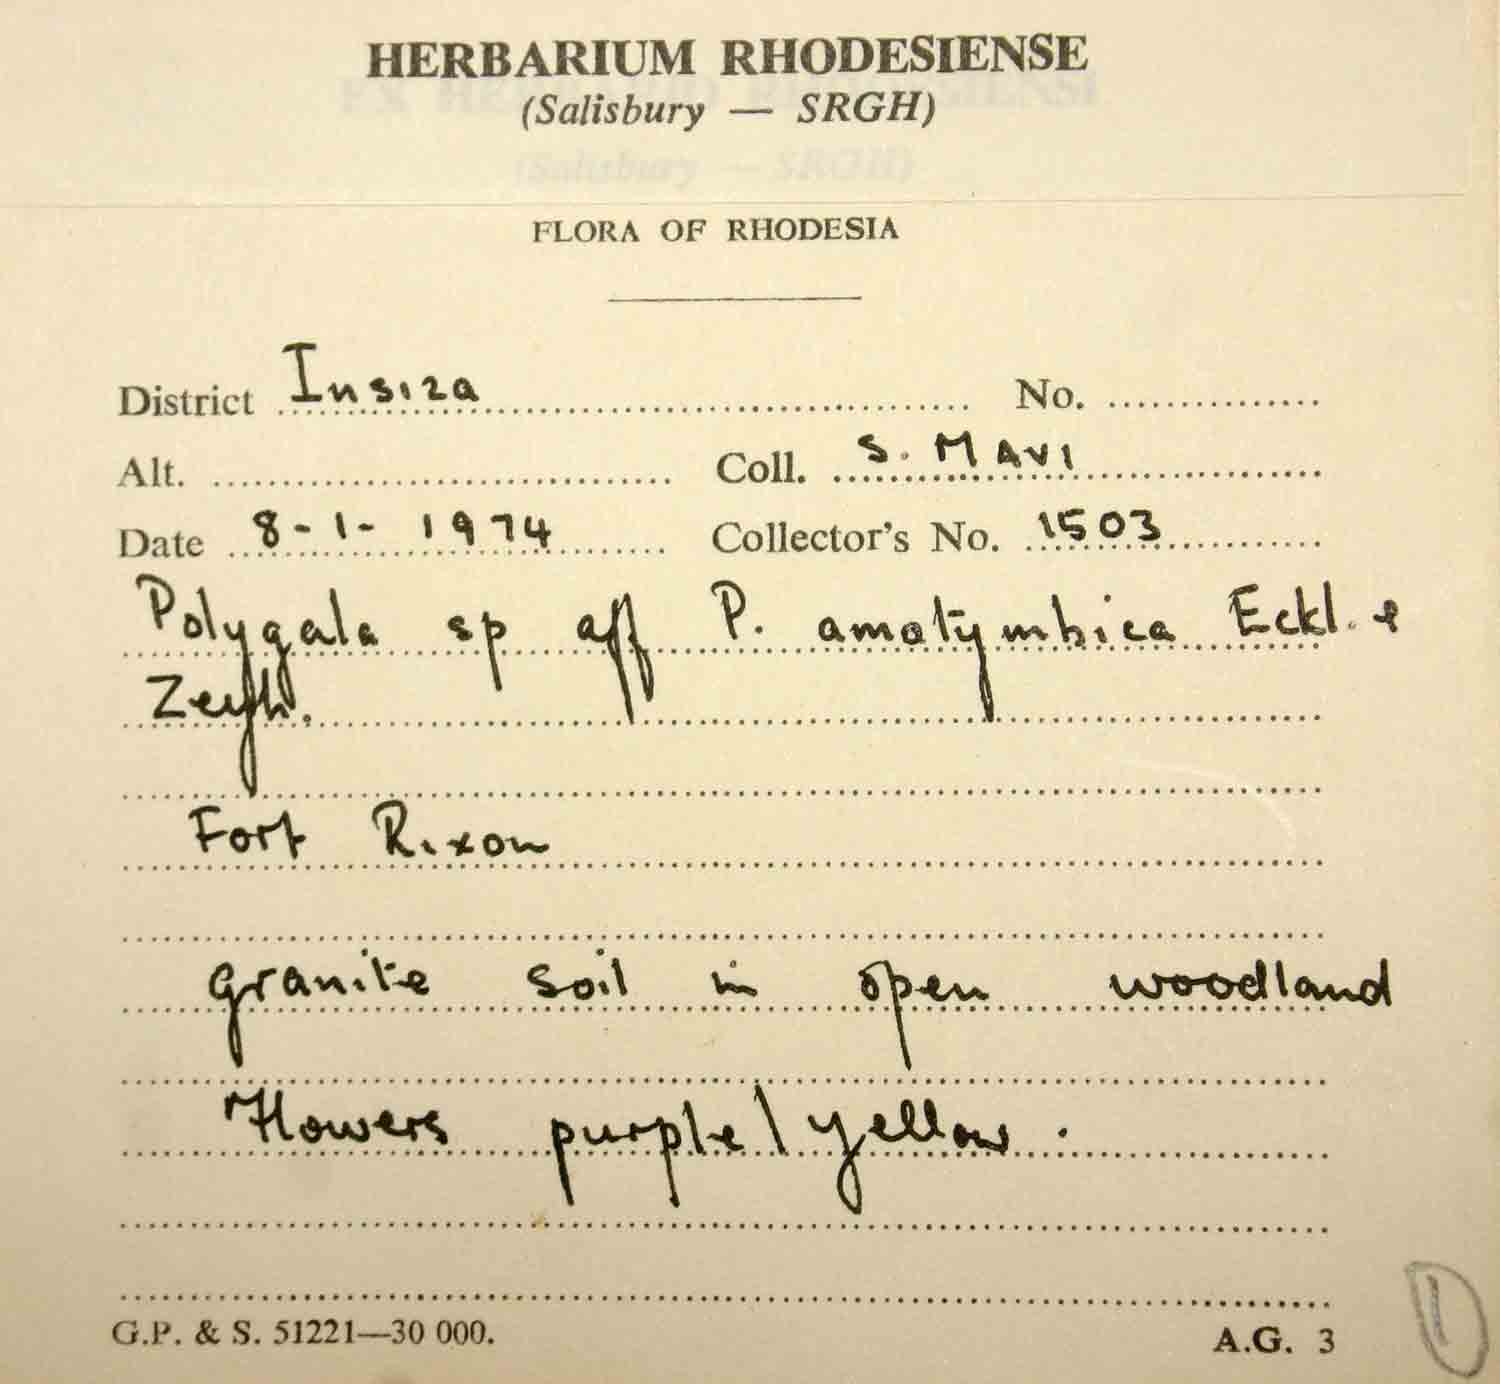 HERBARIUM RHODESIENSE
(Salisbury — SRGH)
FLORA OF RHODESIA
District Insiza No.
Alt. Coll. S. MAVI
Date 8-1-1974 Collector's No. 1503
Polygala sp aff P. amatymbica Eckl. &
Zeyh.
Fort Rixon
granite soil in open woodland
Flowers purple/yellow.
G.P. & S. 51221—30 000. A.G. 3
1